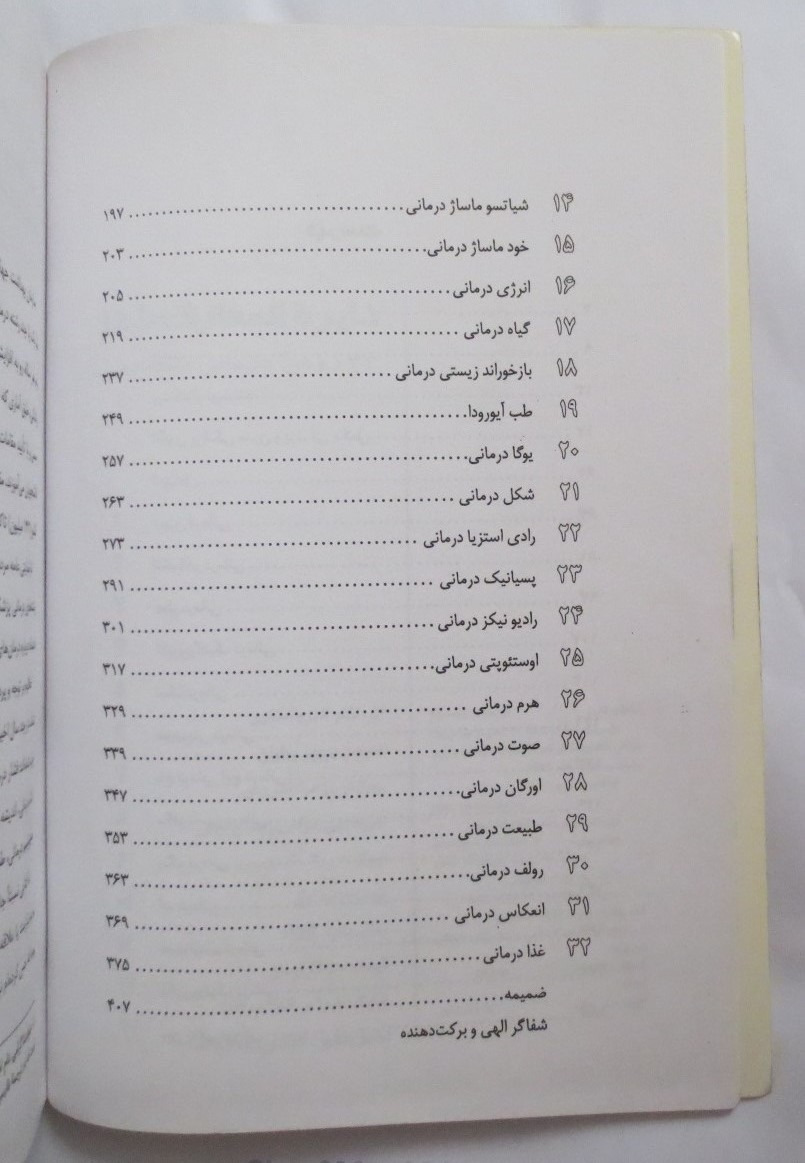 ۱۴ شیاتسو ماساژ درمانی........................................ ۱۹۷
۱۵ خود ماساژ درمانی..................................... ۲۰۳
۱۶ انرژی درمانی ........................................ ۲۰۵
۱۷ گیاه درمانی ......................................... ۲۱۹
۱۸ بازخوراند زیستی درمانی ................................ ۲۳۷
۱۹ طب آیورودا.......................................... ۲۴۹
۲۰ یوگا درمانی.......................................... ۲۵۷
۲۱ شکل درمانی ........................................ ۲۶۳
۲۲ رادی استزیا درمانی ................................... ۲۷۳
۲۳ پسیانیک درمانی ..................................... ۲۹۱
۲۴ رادیو نیکز درمانی ..................................... ۳۰۱
۲۵ اوستئوپتی درمانی..................................... ۳۱۷
۲۶ هرم درمانی ......................................... ۳۲۹
۲۷ صوت درمانی ........................................ ۳۳۹
۲۸ اورگان درمانی........................................ ۳۴۷
۲۹ طبیعت درمانی ....................................... ۳۵۳
۳۰ رولف درمانی......................................... ۳۶۳
۳۱ انعکاس درمانی ...................................... ۳۶۹
۳۲ غذا درمانی.......................................... ۳۷۵
ضمیمه............................................. ۴۰۷
شفاگر الهی و برکت‌دهنده